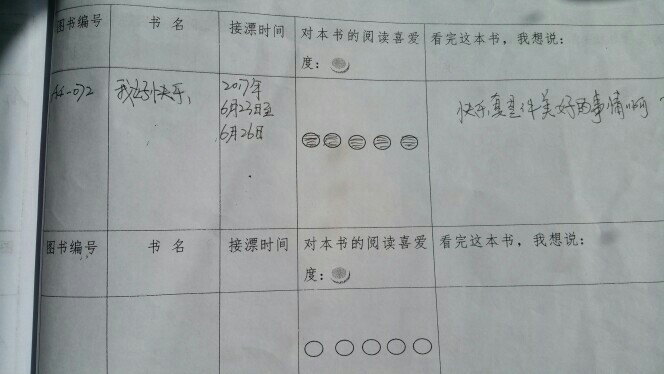 图书编号 书 名 接漂时间 对本书的阅读喜爱度： 看完这本书，我想说：
AA-072 我好快乐、 2017年
6月23日至
6月26日 快乐真是件美好的事情啊
图书编号 书 名 接漂时间 对本书的阅读喜爱度： 看完这本书，我想说：